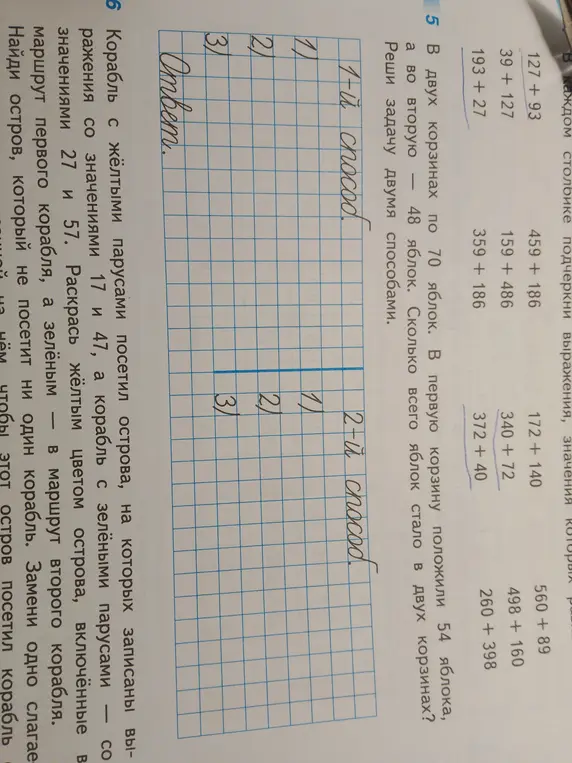 каждом столбике подчеркни выражения, значения которых
127 + 93 459 + 186 172 + 140 560 + 89
39 + 127 159 + 486 340 + 72 498 + 160
193 + 27 359 + 186 372 + 40 260 + 398
5 В двух корзинах по 70 яблок. В первую корзину положили 54 яблока,
а во вторую — 48 яблок. Сколько всего яблок стало в двух корзинах?
Реши задачу двумя способами.
1-й способ. 2-й способ.
1) 1)
2) 2)
3) 3)
Ответ.
6 Корабль с жёлтыми парусами посетил острова, на которых записаны вы-
ражения со значениями 17 и 47, а корабль с зелёными парусами — со
значениями 27 и 57. Раскрась жёлтым цветом острова, включённые в
маршрут первого корабля, а зелёным — в маршрут второго корабля.
Найди остров, который не посетит ни один корабль. Замени одно слагае
нём, чтобы этот остров посетил корабль